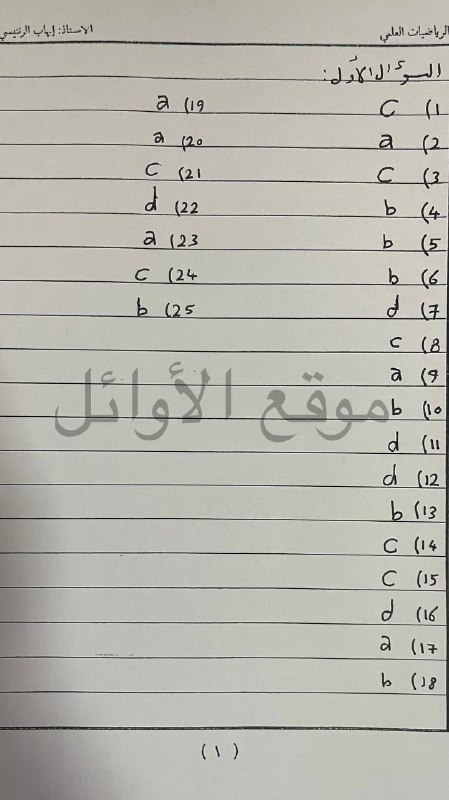 الرياضيات العلمي
الاستاذ: إيهاب الرنتيسي
السؤال الأول:
1) C
2) a
3) C
4) b
5) b
6) b
7) d
8) c
9) a
10) b
11) d
12) d
13) b
14) C
15) C
16) d
17) a
18) b
19) a
20) a
21) C
22) d
23) a
24) C
25) b
موقع الأوائل
(١)